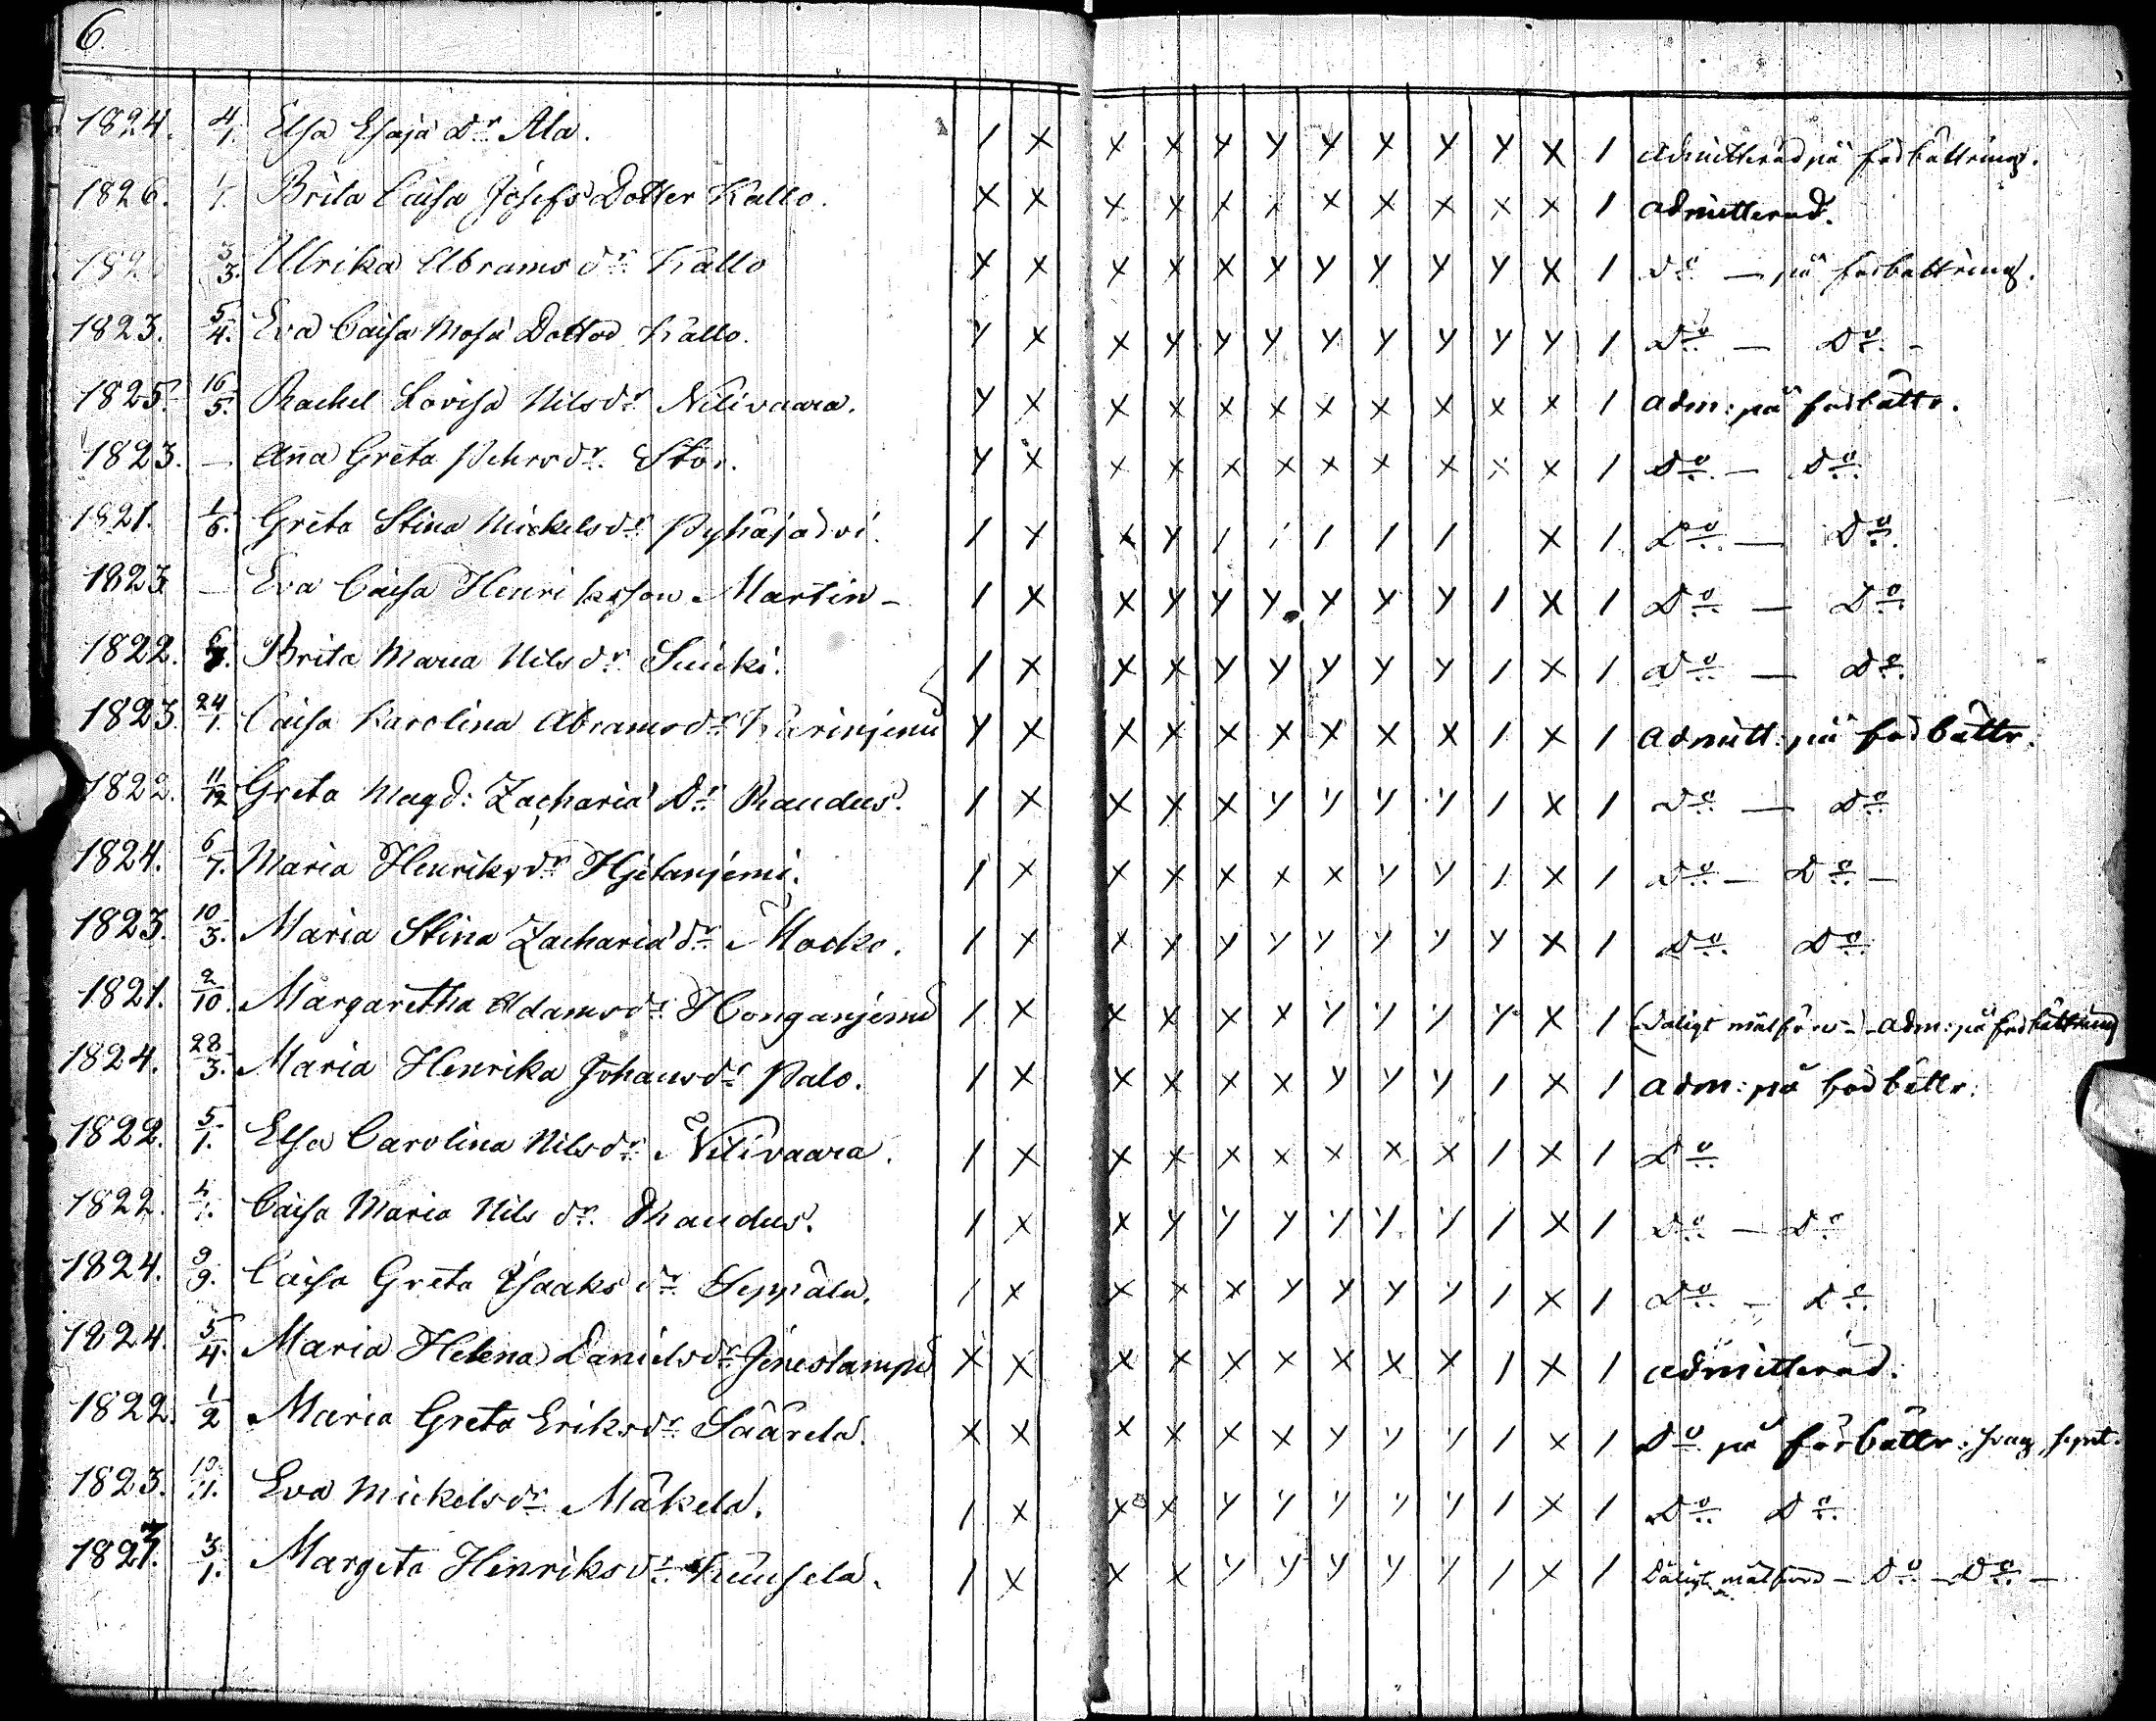 6.
1824. 4/1. Elsa Esajä Dr. Ala. / x x x y y y y y y x / admitterad på förbättring.
1826. 1/1. Brita Caisa Josefs Dotter Kallo. x x x x x x x x x x x / admitterad.
182 3/3. Ulrika Abrams dr. Kallo y x x x x y y y y y x / do — på förbättring.
1823. 5/4. Eva Caisa Mosä Dotter Kallo. y x x y y y y y y y y / Do — Do. -
1825. 16/5. Rachel Lovisa Nils dr. Nilivaara. y x x x x x x x x x x / adm: på förbättr.
1823. — Anna Greta Pehrs dr. Stör. y x x x x x x x x x x / Do — Do
1821. 1/6. Greta Stina Mickels dr. Pyhäjärvi. / x x y / / / / / x / Do — Do.
1823 — Eva Caisa Henriksson Martin - / x x y y y y y y / x / Do — Do
1822. Brita Maria Nils dr. Suicki. / x x x y y y y y / x / Do — Do
1823. 24/1. Caisa Karolina Abrams dr. y x x x x x x x x / x / admitt: på förbättr.
1822. 11/12 Greta Magd: Zachariä Dr. Raudus. / x x x x y y y y / x / Do — Do
1824. 6/7. Maria Henriks dr. Hjetanjemi. / x x x x x x y y / x / Do — Do —
1823. 10/3. Maria Stina Zachariä dr. Mocko. / x x x y y y y y y x / Do Do
1821. 2/10. Margaretha Adams dr. Honganjemi / x x x x x y y y y x / (Dåligt målföre -) - adm: på förbättring
1824. 28/3. Maria Henrika Johans dr. Palo. / x x x x x y y y / x / adm: på förbättr.
1822. 5/1. Elsa Carolina Nils dr. Nilivaara. / x x x x x x x x / x / Do
1822. 4/1. Caisa Maria Nils dr. Raudus. / x x y y y y y y / x / Do — Do
1824. 9/9. Caisa Greta Isaaks dr. Seppälä. / x x x x y y y y / x / Do — Do
1824. 5/4. Maria Helena Daniels dr. Jäneslampi x x x x x x x x x / x / admitterad.
1822. 1/2 Maria Greta Eriks dr. Säärelä. x x x x x x y y y / x / Do på förbättr: svag
1823. 10/11. Eva Mickels dr. Mäkelä. / x x x y y y y y / x / Do Do
1827. 3/1. Margeta Henriks dr. Kuusela. / x x x y y y y y / x / Dåligt målföre — Do — Do —